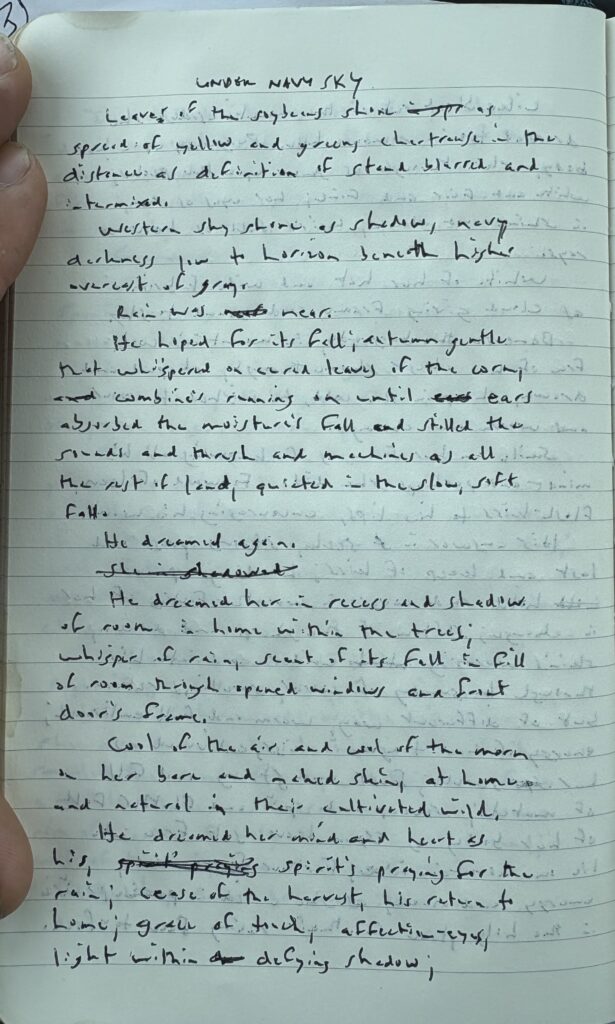 3)
UNDER NAVY SKY
Leaves of the soybeans shone as
spread of yellow and greens chartreuse in the
distance as definition of stand blurred and
intermixed.
Western sky shone as shadow, navy
darkness low to horizon beneath higher
overcast of gray.
Rain was near.
He hoped for its fall; autumn gentle
that whispered on cured leaves of the corn,
combines running on until ears
absorbed the moisture's fall and stilled the
sounds and thrush and machines as all
the rest of land, quieted in the slow, soft
fall.
He dreamed again.
She is shadowed
He dreamed her in recess and shadow
of room in home within the trees;
whisper of rain, scent of its fall in fill
of room through opened windows and front
door's frame.
Cool of the air and cool of the morn
on her bare and naked skin, at home
and natural in their cultivated wild.
He dreamed her mind and heart as
his, spirit's praying for the
rain; cease of the harvest, his return to
home; grace of touch, affection-eyes,
light within defying shadow;